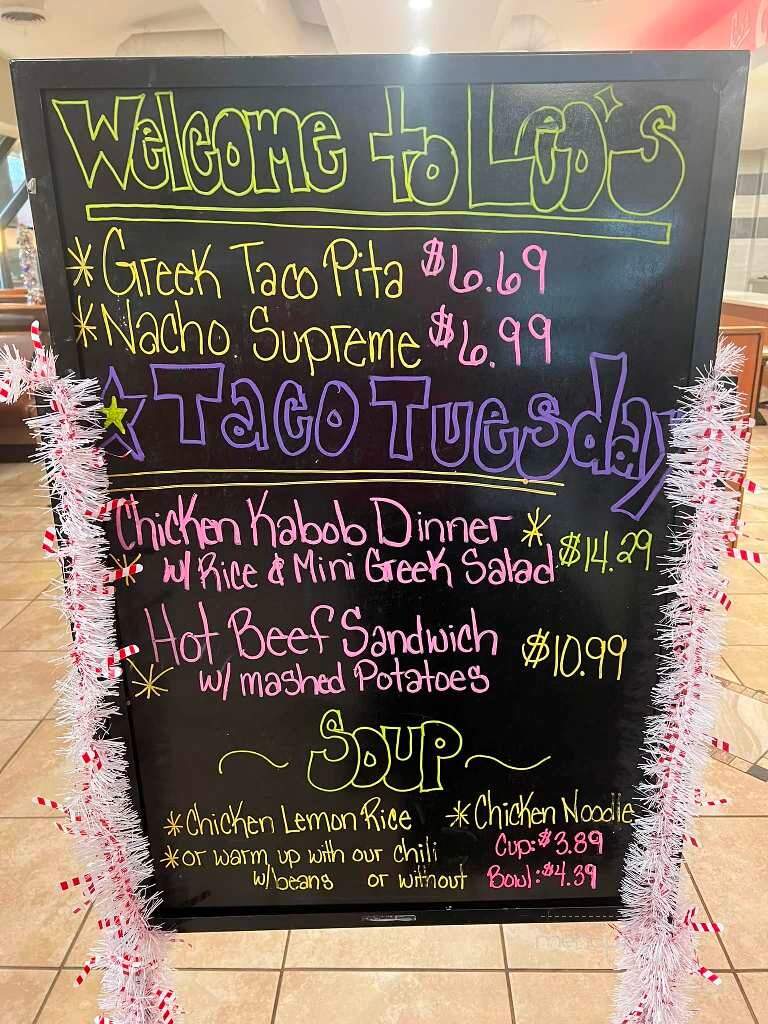 Welcome to Leo's
* Greek Taco Pita $6.69
* Nacho Supreme $6.99
Taco Tuesday
Chicken Kabob Dinner * $14.29
* w/ Rice & Mini Greek Salad
Hot Beef Sandwich $10.99
* w/ mashed Potatoes
~ Soup ~
* Chicken Lemon Rice * Chicken Noodle
* or warm up with our chili Cup: $3.89
w/beans or without Bowl: $4.39